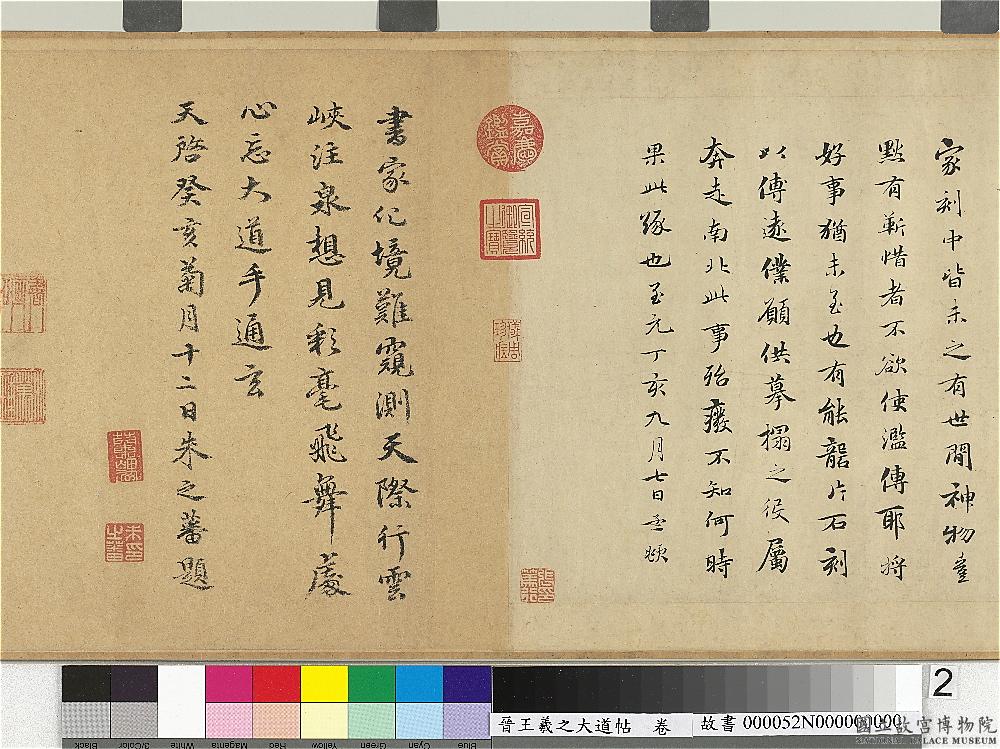 家刻中皆未之有世間神物臺
點有靳惜者不欲使濫傳耶將
好事猶未至也有能龍片石刻
以傳遠僕願供摹搨之役屬
奔走南北此事殆癈不知何時
果此緣也至元丁亥九月七日
嘉慶鑑賞
宣統御覽之寶
書家化境難窺測天際行雲
峽注泉想見彩毫飛舞處
心忘大道手通玄
天啓癸亥菊月十二日朱之蕃題
朱之蕃印
Black
3/Color
White
Magenta
Red
Yellow
Green
Cyan
Blue
2
晉王羲之大道帖 卷 故書 000052N000000000
國立故宮博物院
NATIONAL PALACE MUSEUM